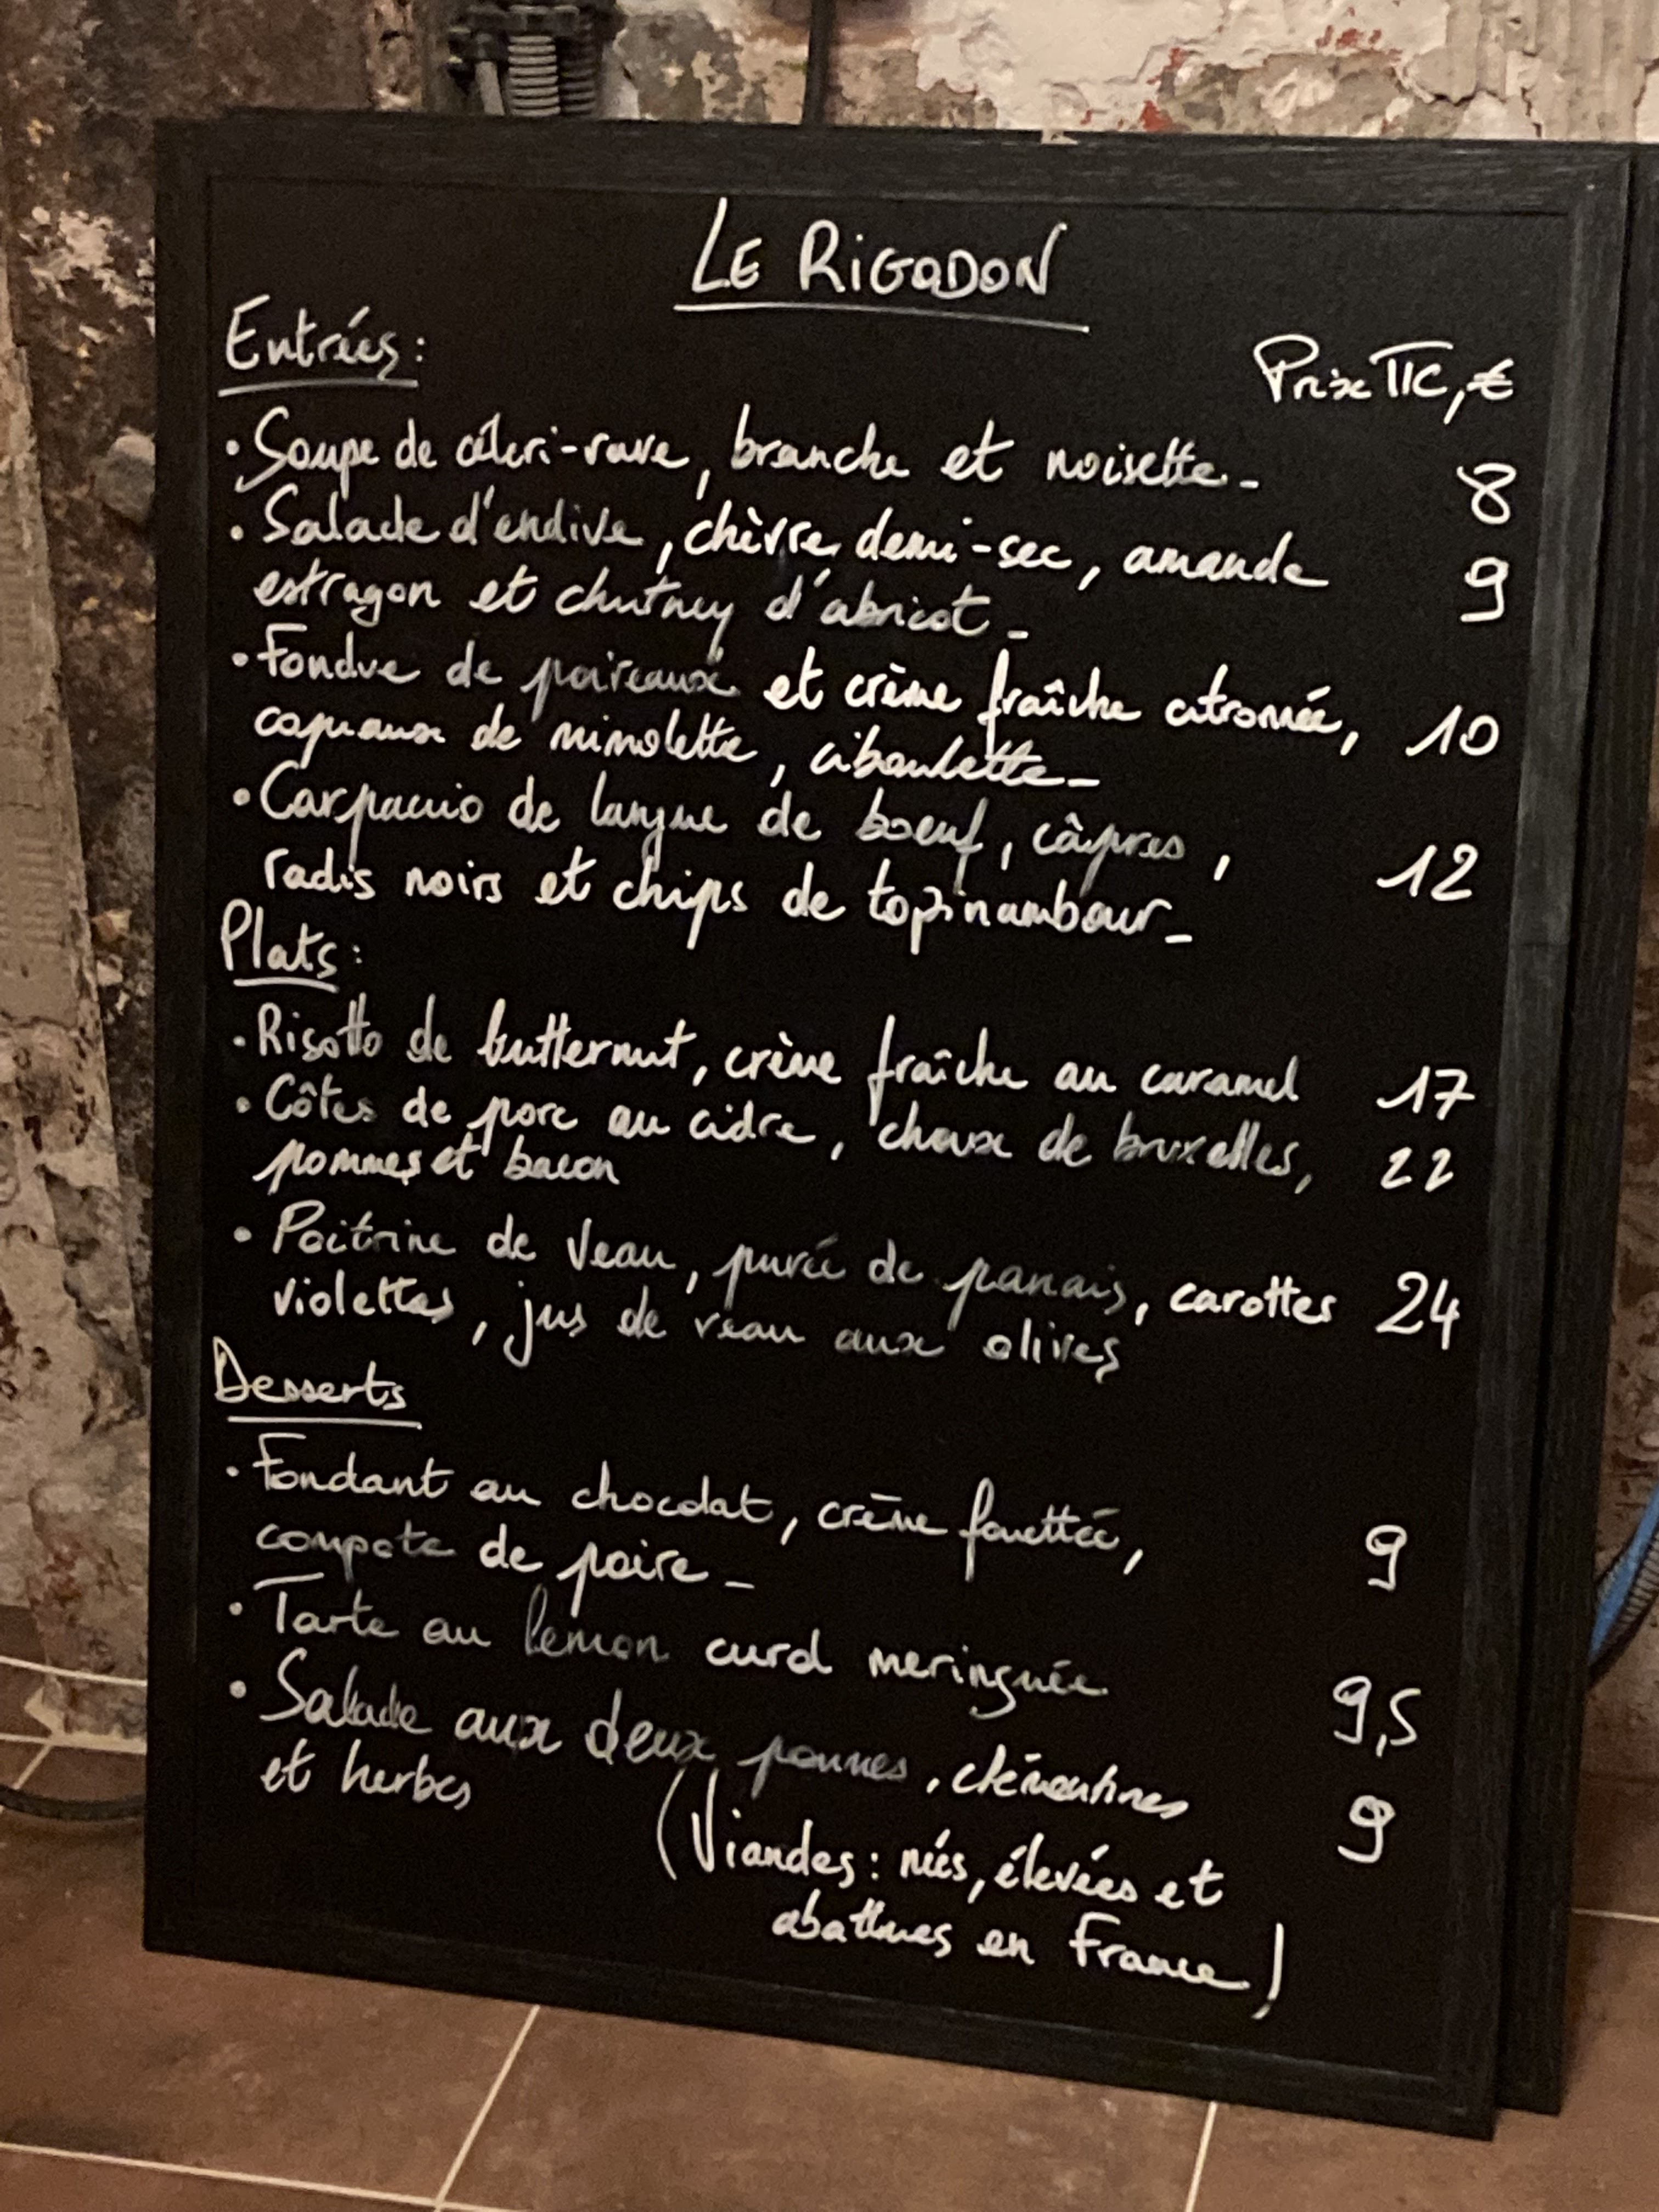 LE RIGODON
Entrées :
Prix TTC, €
• Soupe de céleri-rave, branche et noisette_ 8
• Salade d'endive, chèvre demi-sec, amande 9
estragon et chutney d'abricot_
• Fondue de poireaux et crème fraîche citronnée, 10
copeaux de mimolette, ciboulette_
• Carpaccio de langue de boeuf, câpres, 12
radis noirs et chips de topinambour_
Plats :
• Risotto de butternut, crème fraîche au caramel 17
• Côtes de porc au cidre, choux de bruxelles, 22
pommes et bacon
• Poitrine de veau, purée de panais, carottes 24
violettes, jus de veau aux olives
Desserts
• Fondant au chocolat, crème fouettée, 9
compote de poire_
• Tarte au lemon curd meringuée 9,5
• Salade aux deux pommes, clémentines 9
et herbes
(Viandes : nées, élevées et
abattues en France)